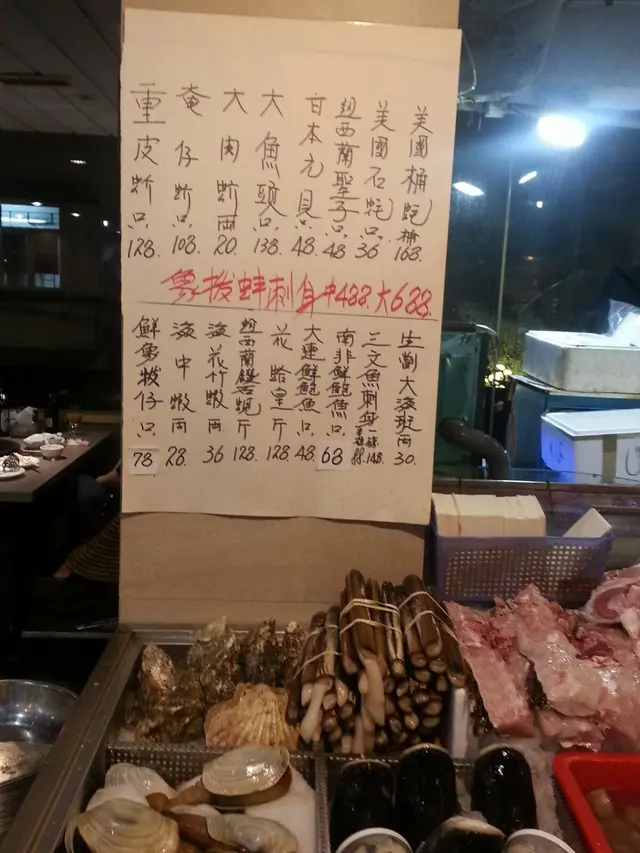 美國桶蚝桶168.
美國石蚝只36
紐西蘭聖子只48
日本元貝只48.
大魚頭只138.
大肉蚧両20.
奄仔蚧只108.
重皮蚧只128.
象拔蚌刺身中488.大688.
生劏大海蝦両30.
三文魚刺身一碟148.
88.
南非鮮鮑魚只68
大連鮮鮑魚只48
花蛤皇斤128.
紐西蘭鑽石蜆斤128.
海花竹蝦両36
海中蝦両28.
鮮象拔仔只78